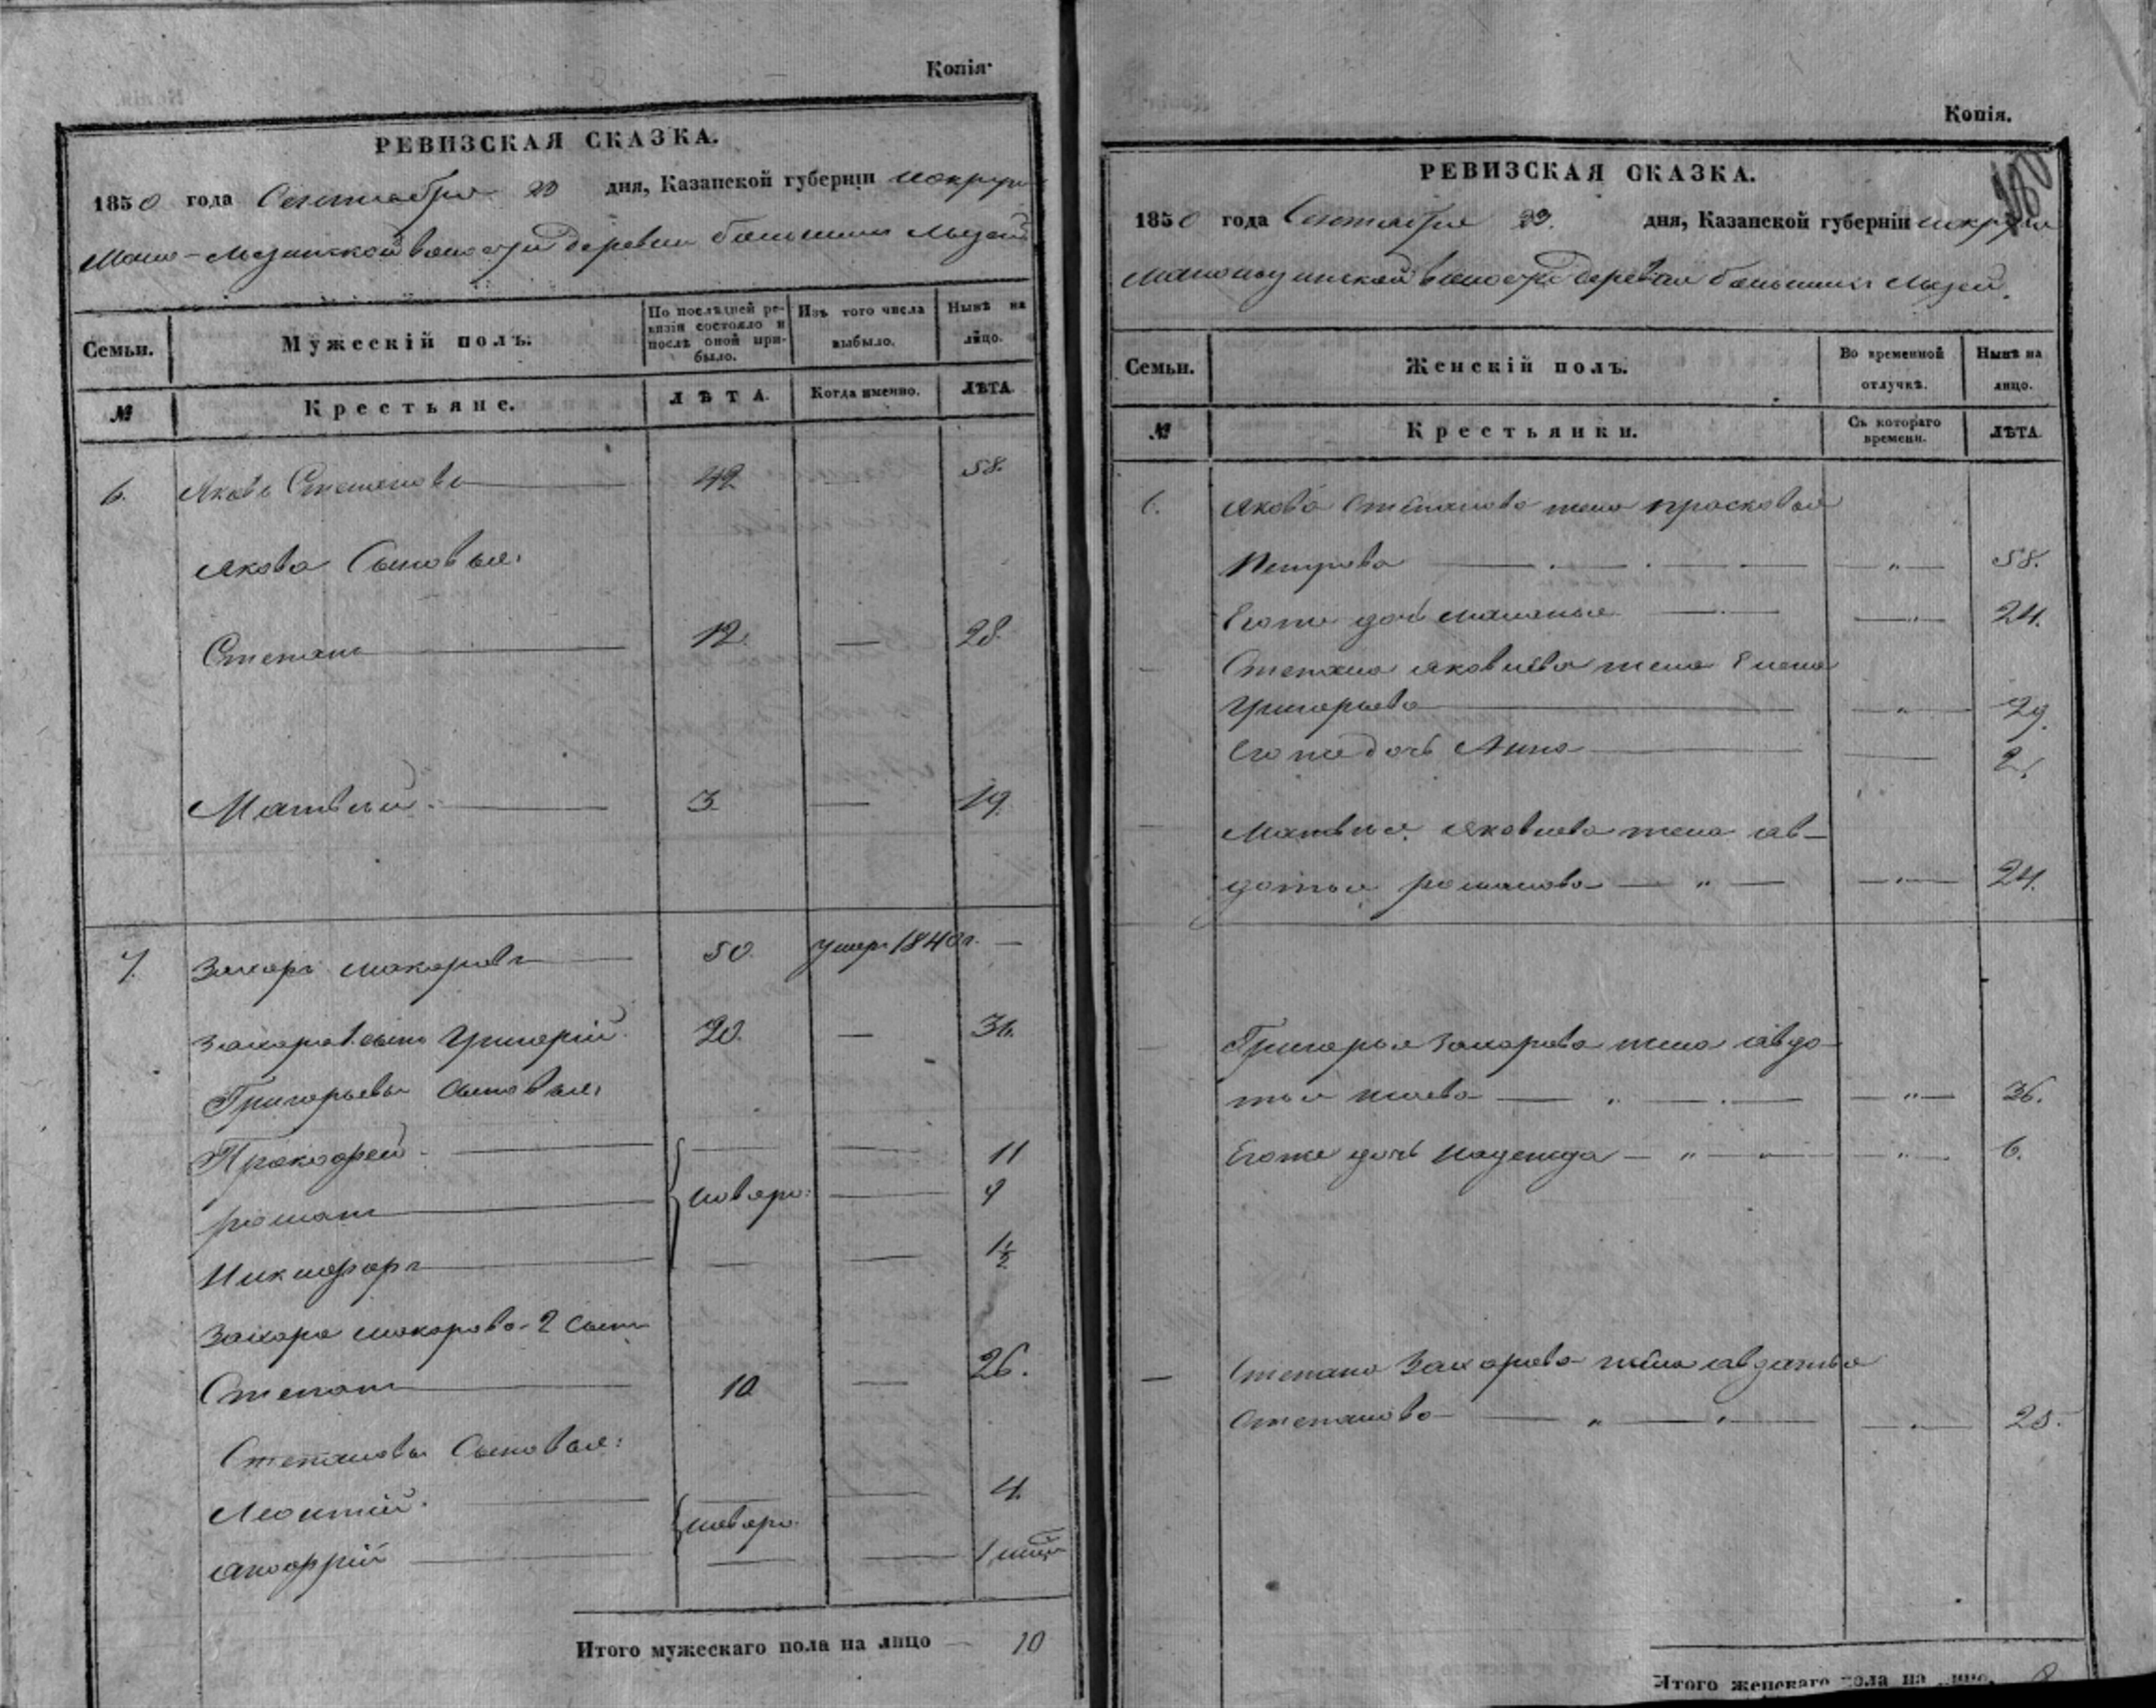 Копія.
РЕВИЗСКАЯ СКАЗКА.
1850 года Сентября 23 дня, Казанской губерніи
волости деревни большихъ
Семьи.
Мужескій полъ.
По послѣдней ревизіи состояло и послѣ оной прибыло.
Изъ того числа выбыло.
Нынѣ на лицо.
№
Крестьяне.
ЛѢТА.
Когда именно.
ЛѢТА.
6. Яковъ Степановъ 42 — 58.
Якова Сыновья:
Степанъ 12. — 28.
Матвѣй 3 — 19.
7. Захаръ Макаровъ 50. умеръ 1840 г. —
Захара 1. сынъ Григорій 20. — 36.
Григорьевы сыновья:
Прокофей — — 11
романъ новоро: — 9
Никифоръ — — 1½
Захара Макарова 2 сынъ
Степанъ 10 — 26.
Степановы Сыновья:
Леонтій — — 4.
новоро:
— — 1
Итого мужескаго пола на лицо — 10
Копія.
РЕВИЗСКАЯ СКАЗКА.
1850 года Сентября 23. дня, Казанской губерніи
волости деревни большихъ
Семьи.
Женскій полъ.
Во временной отлучкѣ.
Нынѣ на лицо.
№
Крестьянки.
Съ котораго времени.
ЛѢТА.
6. Якова Степанова жена прасковья
Петрова — „ — 58.
Его же дочь маланья — „ — 24.
— Степана яковлева жена Елена
Григорьева — „ — 29.
Его же дочь Анна — 2.
— Матвѣя Яковлева жена ав-
дотья романова — „ — — „ — 24.
— Григорья Захарова жена авдо-
тья — „ — — „ — 36.
Его же дочь надежда — „ — — „ — 6.
— Степана Захарова жена авдотья
Степанова — „ — „ — — „ — 25.
Итого женскаго пола на лицо. 8